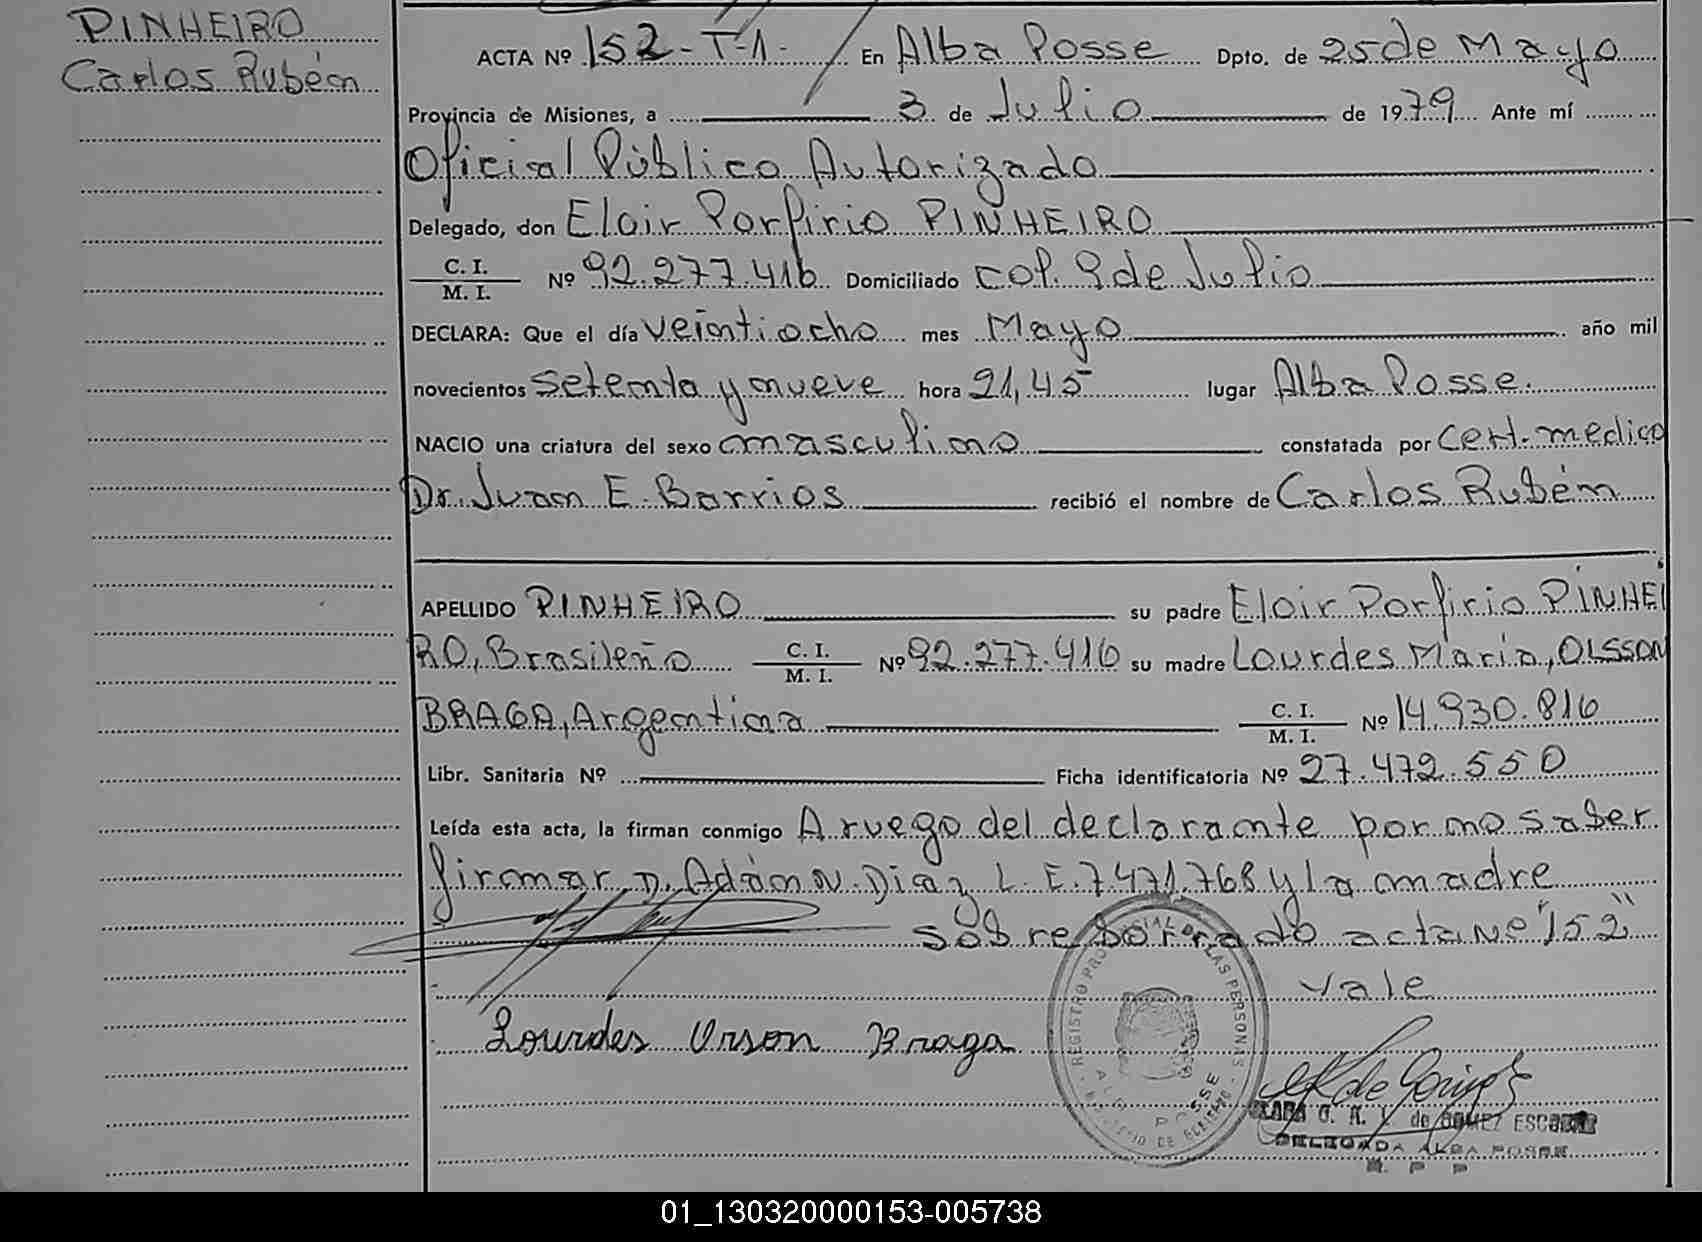 PINHEIRO
Carlos Rubén
ACTA Nº 152-T-1- En Alba Posse Dpto. de 25 de Mayo
Provincia de Misiones, a 3 de Julio de 1979 Ante mí
Oficial Público Autorizado
Delegado, don Eloir Porfirio PINHEIRO
C. I.
M. I. Nº 92.277.416 Domiciliado Col. 9 de Julio
DECLARA: Que el día veintiocho mes Mayo año mil
novecientos setenta y nueve hora 21,45 lugar Alba Posse.
NACIO una criatura del sexo masculino constatada por Cert. medico
Dr. Juan E. Barrios recibió el nombre de Carlos Rubén
APELLIDO PINHEIRO su padre Eloir Porfirio PINHEI
RO, Brasileño C. I. M. I. Nº 92.277.416 su madre Lourdes María, OLSSON
BRAGA, Argentina C. I. M. I. Nº 14.930.816
Libr. Sanitaria Nº Ficha identificatoria Nº 27.472.550
Leída esta acta, la firman conmigo A ruego del declarante por no saber
firmar, D. Adán N. Diaz L. E. 7471.768 y la madre
sobre borrado acta Nº "152"
Vale
Lourdes Orson Braga
REGISTRO PROVINCIAL DE LAS PERSONAS
ALBA POSSE
de GOMEZ
DELEGADA ALBA POSSE
01_130320000153-005738